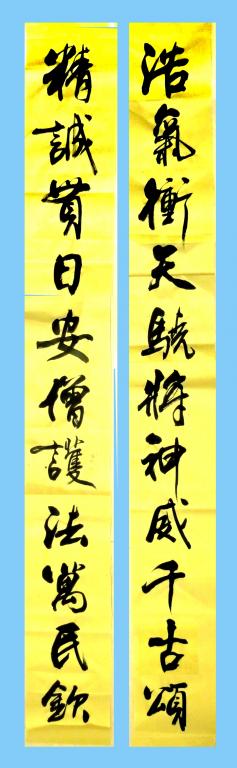 浩氣衝天驍將神威千古頌
精誠貫日安僧護法萬民欽